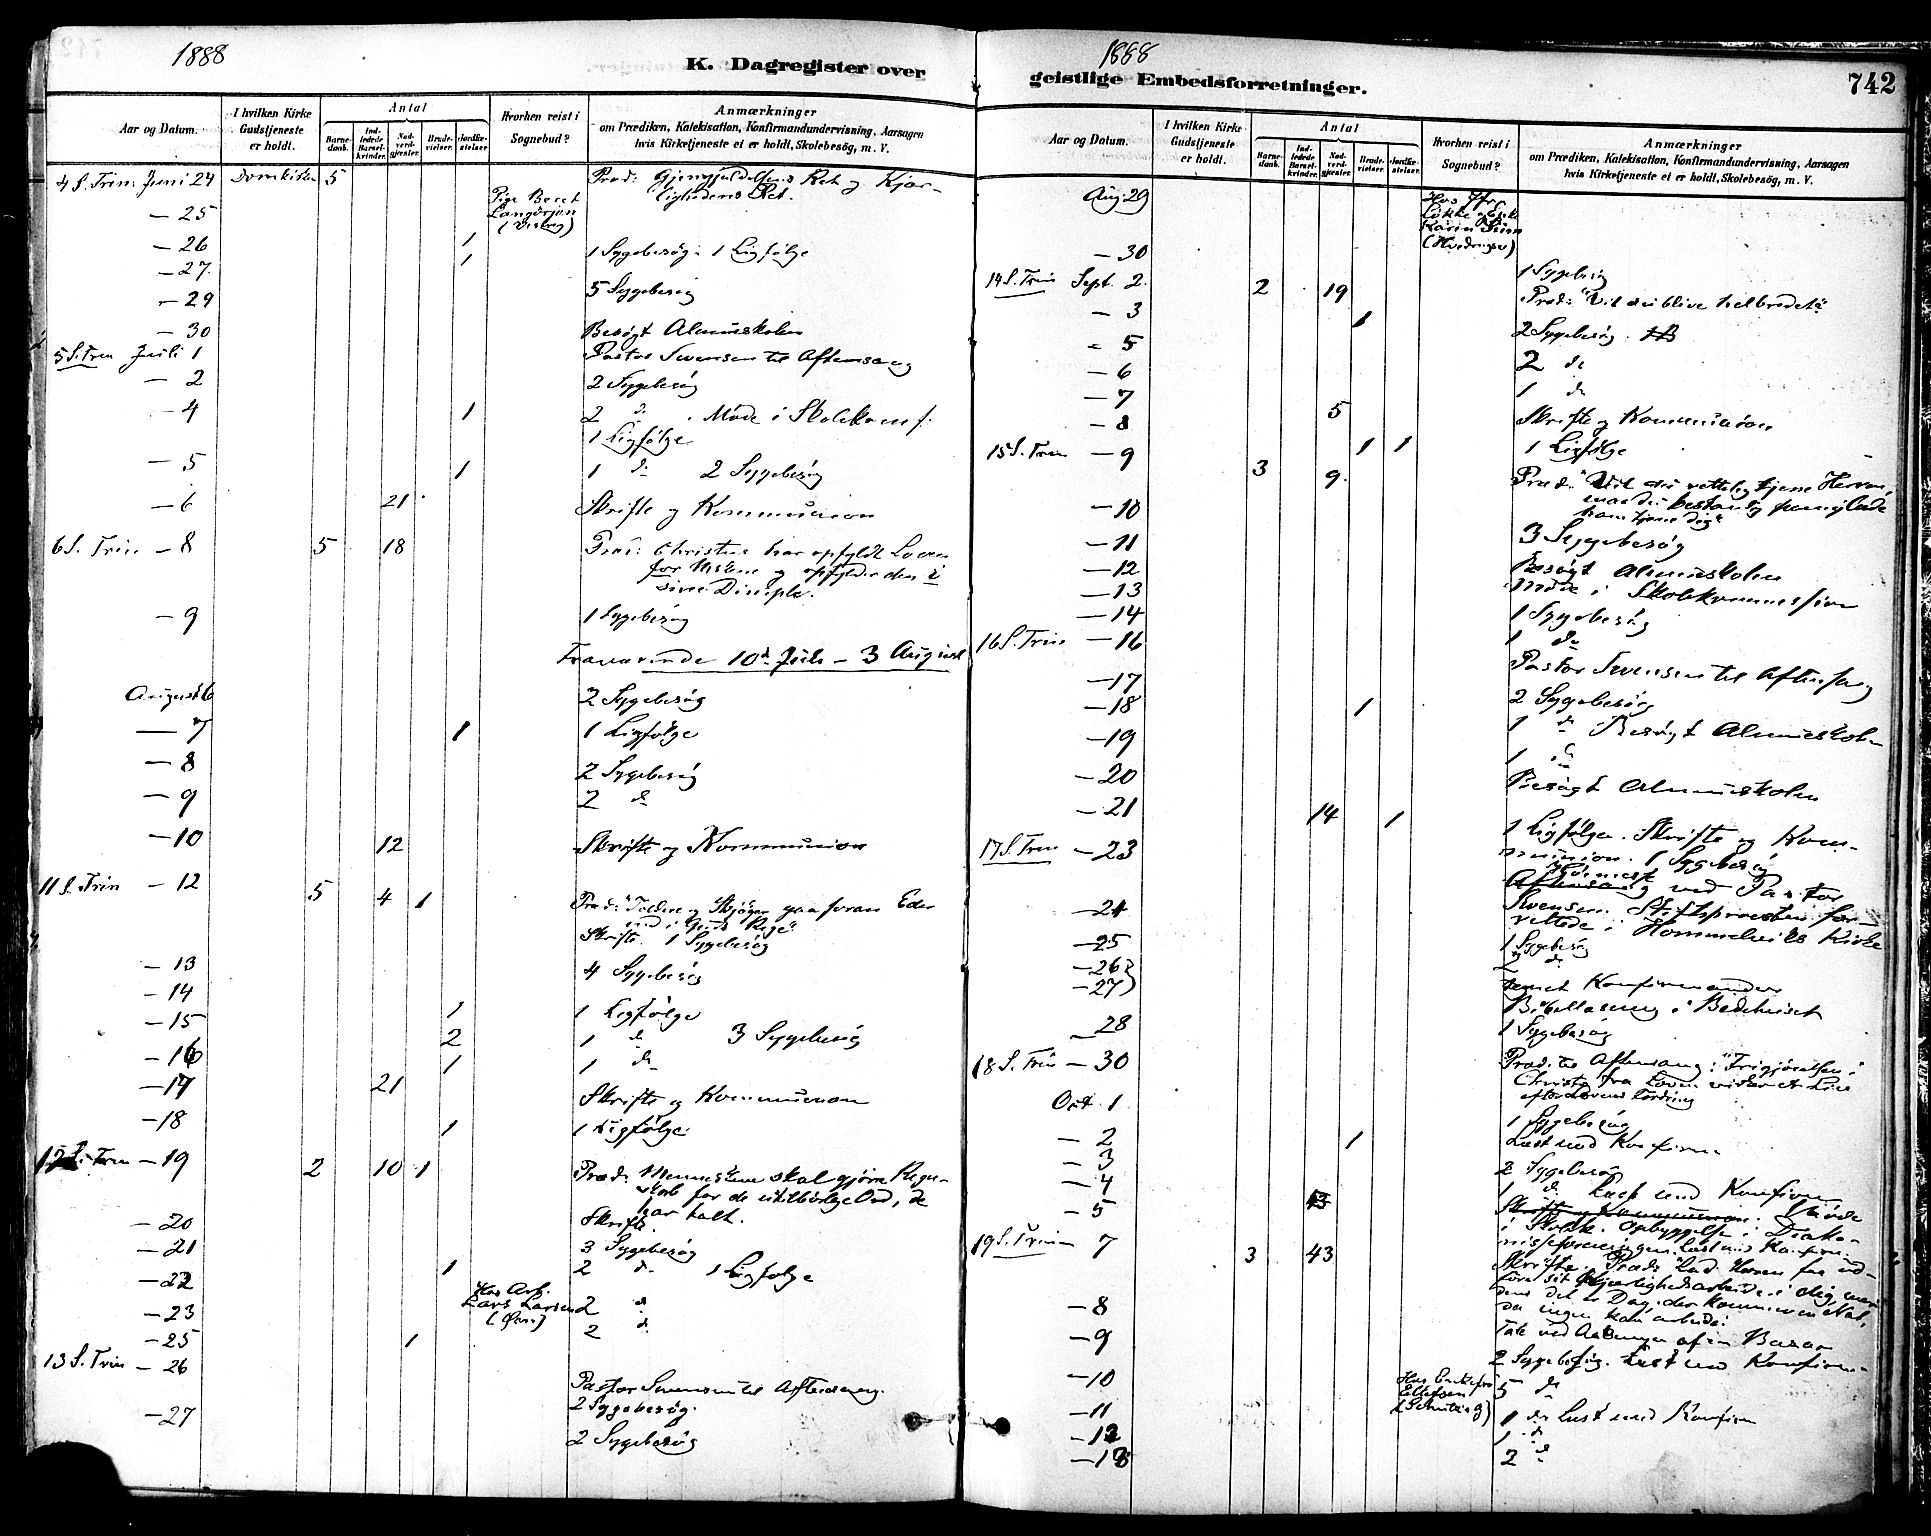 1888
K. Dagregister over
Aar og Datum.
I hvilken Kirke Gudstjeneste er holdt.
Antal
Barnedaab.
Indledede Barselkvinder.
Nadverdgjester.
Brudevielser.
Jordfæstelser.
Hvorhen reist i Sognebud?
Anmærkninger
om Prædiken, Katekisation, Konfirmandundervisning, Aarsagen
hvis Kirketjeneste ei er holdt, Skolebesøg, m. V.
4 S. Trin. Juni 24 Domkirken 5 Præd: Gjengjældelsens Ret og Kjær-
lighedens Ret.
— 25 Pige Beret
— 26 1 1 Sygebesøg. 1 Ligfølge
— 27 1
— 29 5 Sygebesøg
— 30 Besøgt Almueskolen
5 S. Trin Juli 1 Pastor Svensen til Aftensang
— 2 2 Sygebesøg
— 4 1 2 d. Møde i Skolekomf.
1 Ligfølge
— 5 1 1 d. 2 Sygebesøg
— 6 21 Skrifte og Kommunion
6 S. Trin — 8 5 18 Præd: Christus har opfyldt Loven
for og opfylder den i
sine Disciple.
— 9 1 Sygebesøg
Fraværende 10d Juli – 3 August
August 6 2 Sygebesøg
— 7 1 1 Ligfølge
— 8 2 Sygebesøg
— 9 2 d.
— 10 12 Skrifte og Kommunion
11 S. Trin — 12 5 4 1 Præd: "Toldere og Skjøger gaa foran Eder
ind i Guds Rige"
Skrifte. 1 Sygebesøg
— 13 4 Sygebesøg
— 14 1 1 Ligfølge
— 15 2 1 d. 3 Sygebesøg
— 16 1 1 d.
— 17 21 Skrifte og Kommunion
— 18 1 1 Ligfølge
12 S. Trin — 19 2 10 1 Præd: Menneskene skal gjøre Regn-
skab for de utilbørlige Ord, de
har talt.
Skrifte.
— 20 3 Sygebesøg
— 21 1 2 d. 1 Ligfølge
— 22 Hos Arb.
Lars Larsen 2 d.
— 23 2 d.
— 25 1
13 S. Trin — 26 Pastor Svensen til Aftensang.
2 Sygebesøg.
— 27 2 Sygebesøg
1888
geistlige Embedsforretninger.
742
Aar og Datum.
I hvilken Kirke Gudstjeneste er holdt.
Antal
Barnedaab.
Indledede Barselkvinder.
Nadverdgjester.
Brudevielser.
Jordfæstelser.
Hvorhen reist i Sognebud?
Anmærkninger
om Prædiken, Katekisation, Konfirmandundervisning, Aarsagen
hvis Kirketjeneste ei er holdt, Skolebesøg, m. V.
Aug 29
— 30 1 Sygebesøg
14 S. Trin Sept. 2. 2 19 Præd: "Vil du blive helbredet"
— 3 1 2 Sygebesøg
— 5 2 d.
— 6 1 d.
— 7 5 Skrifte og Kommunion
— 8 1 1 1 Ligfølge
15 S. Trin — 9 3 9 Præd. "Vil du rettelig tjene Herren,
— 10 3 Sygebesøg
— 11 Besøgt Almueskolen
— 12 Møde i Skolekommission
— 13 1 Sygebesøg
— 14 1 d.
16 S. Trin — 16 Pastor Svensen til Aftensang
— 17 2 Sygebesøg
— 18 1 1 d. Besøgt Almueskolen
— 19 1 d.
— 20 Besøgt Almueskolen
— 21 14 1 1 Ligfølge. Skrifte og Kom-
munion. 1 Sygebesøg
17 S. Trin — 23 Aftensang ved Pastor
Svensen. Stiftsprovsten for-
rettede i Hommelviks Kirke
— 24 1 Sygebesøg
— 25 2 d.
— 26
— 27 Konfirmander
Bibellæsning i Bedehuset
— 28 1 Sygebesøg
18 S. Trin — 30 Præd. til Aftensang: "Frigjørelsen i
Christo fra Loven virker et Live
efter Lovens Fordring
Oct. 1 1 Sygebesøg
— 2 1 Læst med Konfirm.
— 3 2 Sygebesøg
— 4 1 d. Læst med Konfirm.
— 5 43 Skrifte og Kommunion. Møde
i Skolek. Opbyggelse i Diako-
nisseforeningen. Læst med Konfirm.
19 S. Trin — 7 3 43 Skrifte. Præd: Lad Herren faa ud-
føre sit Kjærlighedsarbeide i dig, mens
det er Dag; der kommer en Nat,
da ingen kan arbeide.
— 8 Tale ved Aabningen af en Basar
— 9 2 Sygebesøg. Læst med Konfirm.
— 10 5 d.
— 11 1 d. Læst med Konfirm
— 12 1 d.
— 13 2 d.